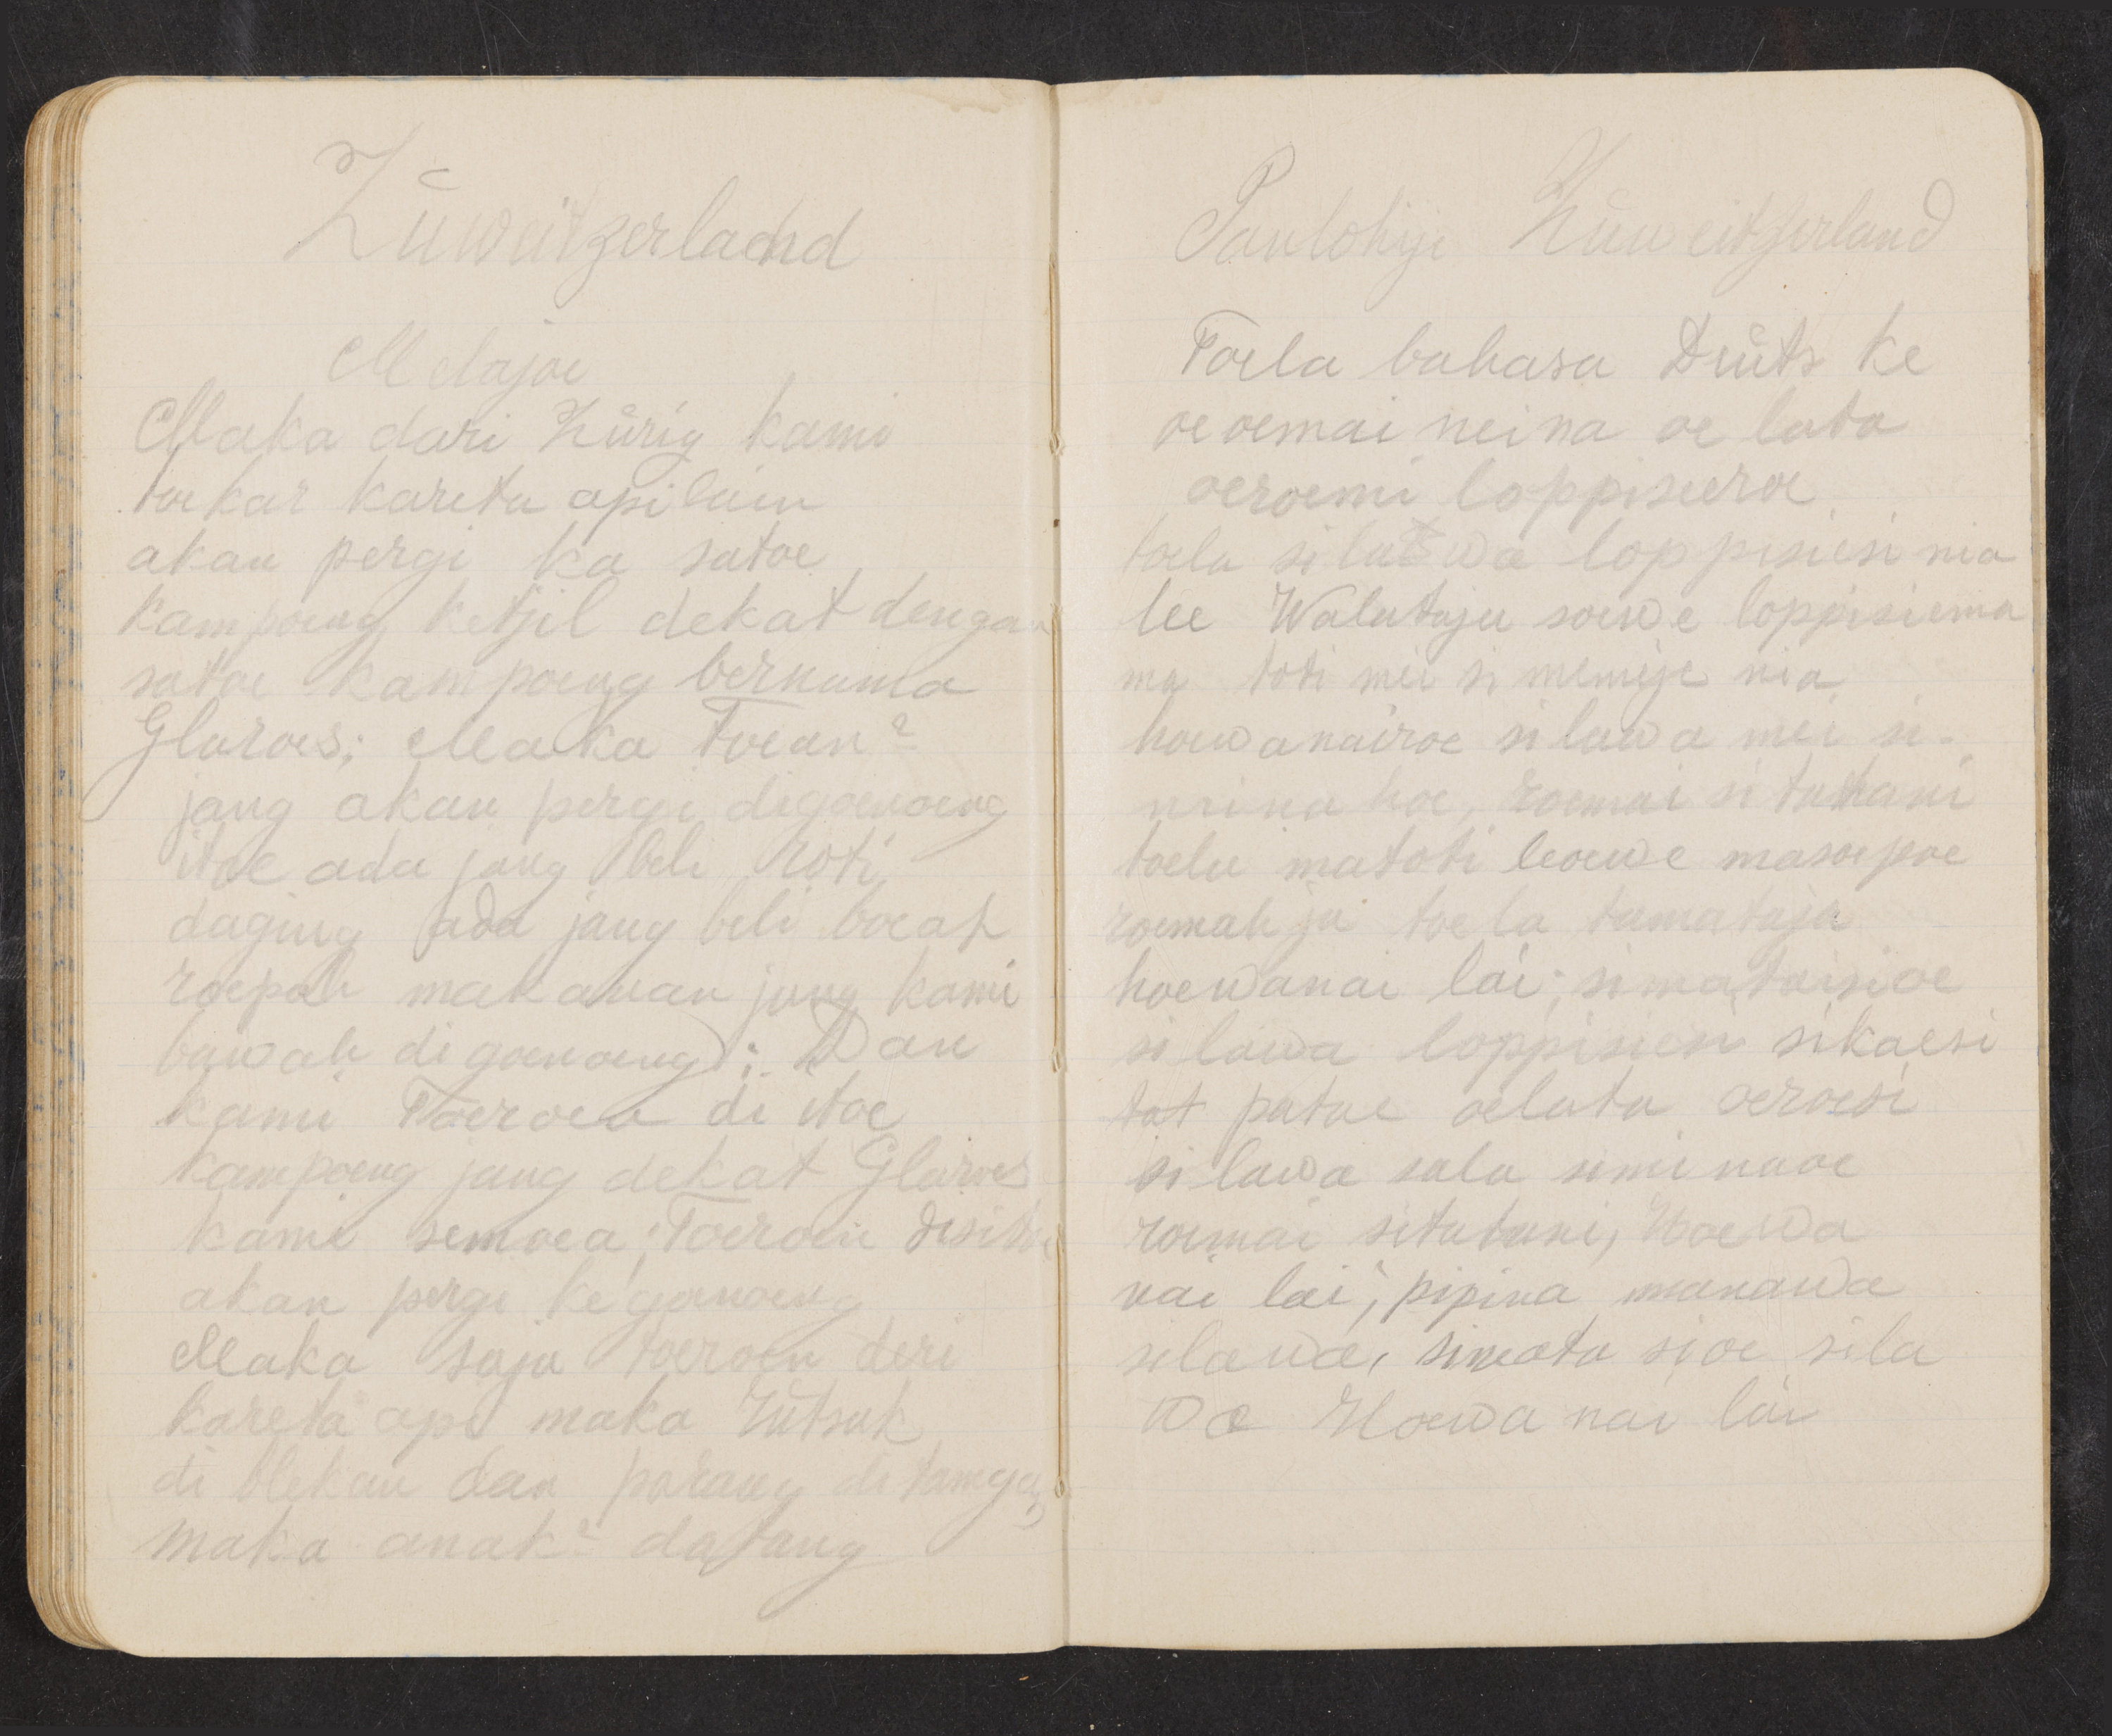 Züweitzerland
Melajoe
Maka dari Zürig kami
toekar kareta api lain
akan pergi ka satoe
kampoeng ketjil dekat dengan
satoe kampoeng bernama
Glaroes; Maka Toean²
jang akan pergi digoenoeng
itoe ada jang beli roti
daging ada jang beli boeah
roepah makanan jang kami
bawah digoenoeng: Dan
kami Toeroen di itoe
kampoeng jang dekat Glaroes
kami semoea; Toeroen disitoe
akan pergi ke goenoeng
Maka saja toeroen deri
kareta api maka Rütsak
di blekan dan parang di tangan,
maka anak² datang
Paulohije Züweitzerland
Toela bahasa Düits ke
oe oemai nei na oe lata
oeroemi loppiseeroe
toela silawa loppisiesi nia
lee Walataja soewe loppisiema
ma toti mei si memije nia
howanairoe silawa mei si-
nrina hoe, roemai si tahani
toelu matoti leoewe masoepoe
roemah ja toela tamataja
hoewanai lai; simataisioe
silawa loppisiesi sikaesi
tat patoe oelata oeroesi
silawa sala simi naoe
roemai sitahani, Hoewa
nai lai, pipina manawa
silawa, simata sioe sila
wa Hoewa nai lai